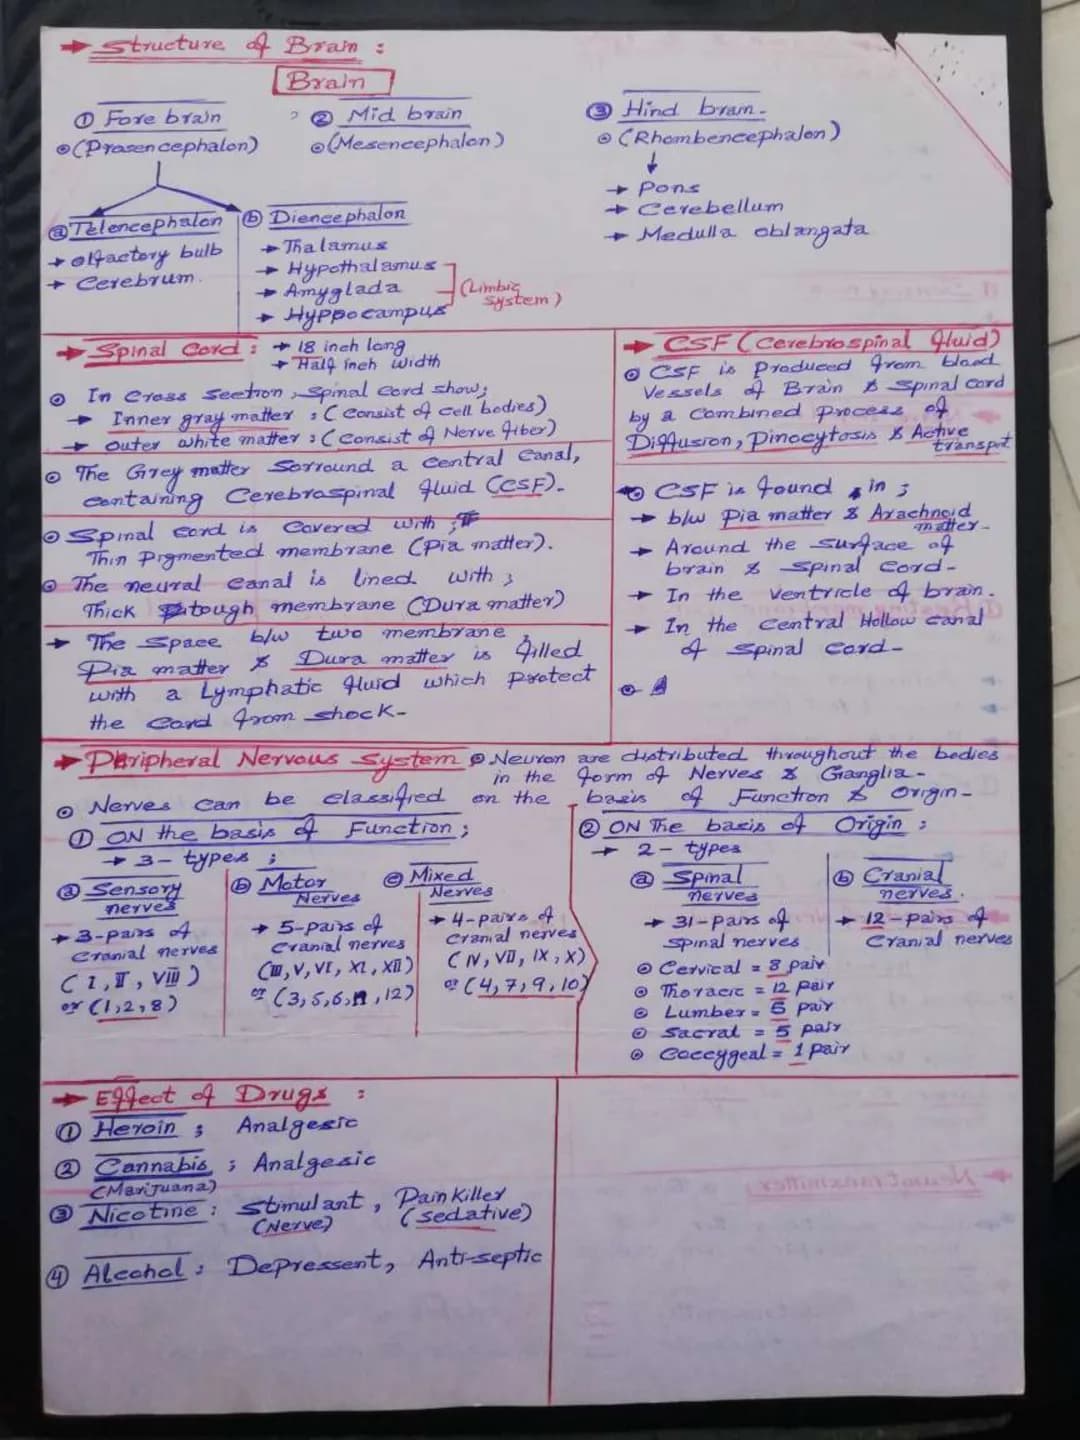 → Structure of Brain :
Brain
① Fore brain
⊙ (Prasencephalon)
② Mid brain
⊙ (Mesencephalon)
③ Hind bram.
⊙ (Rhombencephalon)
↓
→ Pons
→ Cerebellum
→ Medulla oblangata
ⓐ Telencephalon
→ olfactory bulb
→ Cerebrum.
ⓑ Diencephalon
→ Thalamus
→ Hypothalamus
→ Amyglada
→ Hyppocampus
(Limbic
system)
→ Spinal Cord : → 18 inch long
→ Half inch width
⊙ In Cross section, Spinal cord show;
→ Inner gray matter : (consist of cell bodies)
→ outer white matter : (consist of Nerve fiber)
⊙ The Grey matter Sorround a central Canal,
containing Cerebrospinal fluid (CSF).
⊙ Spinal cord is Covered with ;
Thin pigmented membrane (Pia matter).
⊙ The neural canal is lined with ;
Thick tough membrane (Dura matter)
→ The Space b/w two membrane,
Pia matter & Dura matter is filled
with a Lymphatic fluid which protect
the cord from shock-
→ CSF (Cerebrospinal fluid)
⊙ CSF is produced from blood
Vessels of Brain & spinal cord
by a Combined Process of
Diffusion, Pinocytosis & Active
transpt
⊙ CSF is found in ;
→ b/w Pia matter & Arachnoid
matter-
→ Around the surface of
brain & spinal cord-
→ In the ventricle of brain.
→ In the central Hollow canal
of spinal cord-
→ Peripheral Nervous System ⊙ Neuron are distributed throughout the bodies
in the form of Nerves & Ganglia-
⊙ Nerves can be classified on the basis of Function & origin-
① ON the basis of Function ;
→ 3- types ;
ⓐ Sensory
nerves
→ 3-pairs of
Cranial nerves
(I, II, VIII)
or (1,2,8)
ⓑ Motor
Nerves
→ 5-pairs of
Cranial nerves
(III, V, VI, XI, XII)
or (3,5,6,11,12)
ⓒ Mixed
Nerves
→ 4-pairs of
Cranial nerves
(IV, VII, IX, X)
or (4,7,9,10)
② ON The basis of Origin :
→ 2- types
ⓐ Spinal
nerves
→ 31-pairs of
spinal nerves
⊙ Cervical = 8 pair
⊙ Thoracic = 12 pair
⊙ Lumber = 5 pair
⊙ Sacral = 5 pair
⊙ Coccygeal = 1 pair
ⓑ Cranial
nerves.
→ 12-pairs of
Cranial nerves
→ Effect of Drugs :
① Heroin ; Analgesic
② Cannabis ; Analgesic
(Marijuana)
③ Nicotine : Stimulant, Pain Killer
(Nerve) (sedative)
④ Alcohol : Depressent, Anti-septic